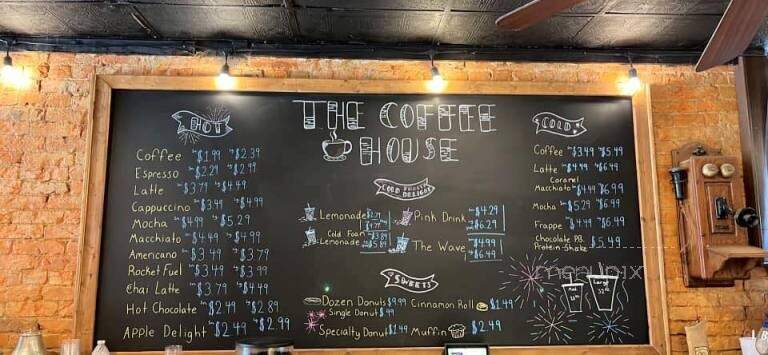 THE COFFEE
HOUSE
HOT
Coffee $1.99 $2.39
Espresso $2.29 $2.99
Latte $3.79 $4.49
Cappuccino $3.99 $4.99
Mocha $4.99 $5.29
Macchiato $4.49 $4.99
Americano $3.49 $3.79
Rocket Fuel $3.49 $3.99
Chai Latte $3.79 $4.49
Hot Chocolate $2.49 $2.89
Apple Delight $2.49 $2.99
COLD FROSTY
DELIGHT
Lemonade
Cold Foam
Lemonade $3.89
$5.89
Pink Drink $4.29
$6.29
The Wave $4.99
$6.49
SWEETS
Dozen Donuts $9.99
Single Donut $.99
Specialty Donut $1.49
Cinnamon Roll $1.49
Muffin $2.49
COLD
Coffee $3.49 $5.49
Latte $4.49 $6.49
Caramel
Macchiato $4.99 $6.99
Mocha $5.29 $6.49
Frappe $4.49 $6.49
Chocolate PB
Protein Shake $5.49
Large
menupix